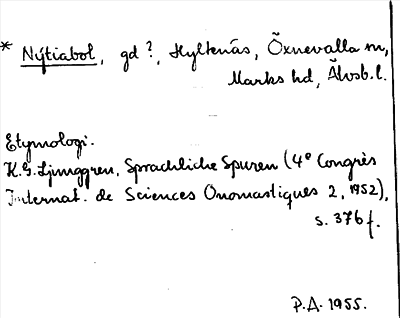 * Nýtiabol, gd ?, Hyltenäs, Öxnevalla sn,
Marks hd, Älvsb.l.
Etymologi.
K.G. Ljunggren, Sprachliche Spuren (4e Congrès
Internat. de Sciences Onomastiques 2, 1952),
s. 376 f.
P.A. 1955.